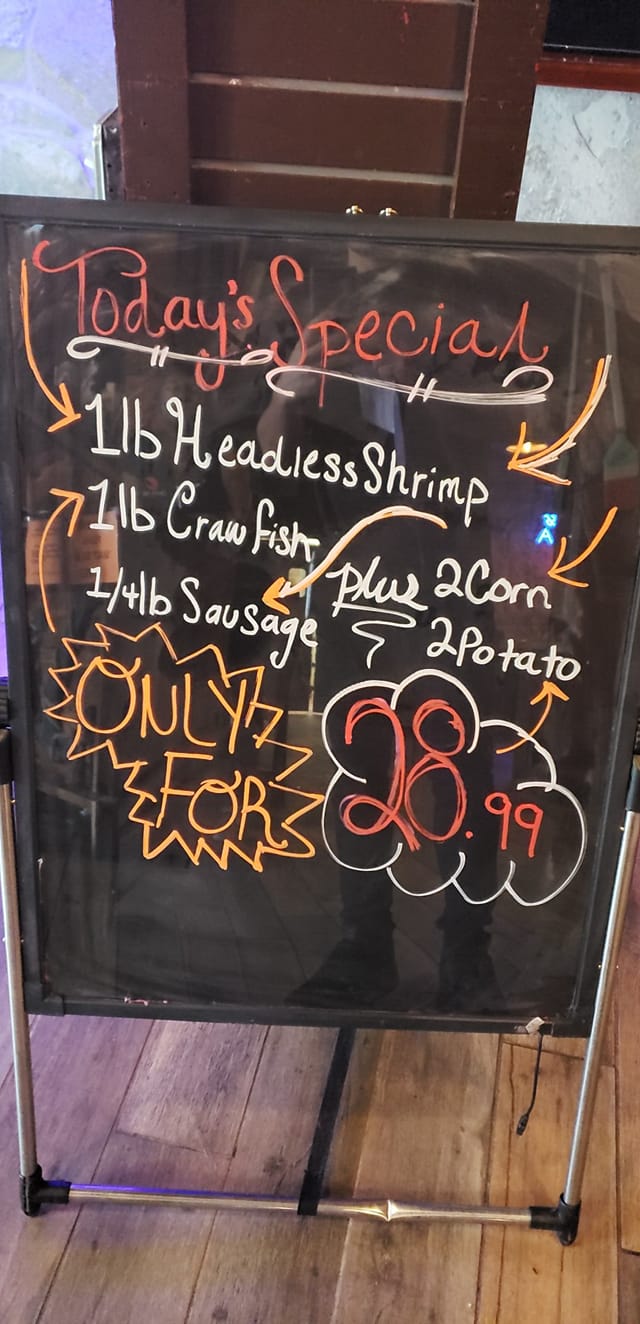 Today's Special
1lb Headless Shrimp
1lb Crawfish
1/4lb Sausage
plus 2Corn
2Potato
ONLY
FOR
28.99